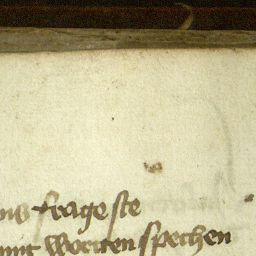 frage ste
mit worten sprechen